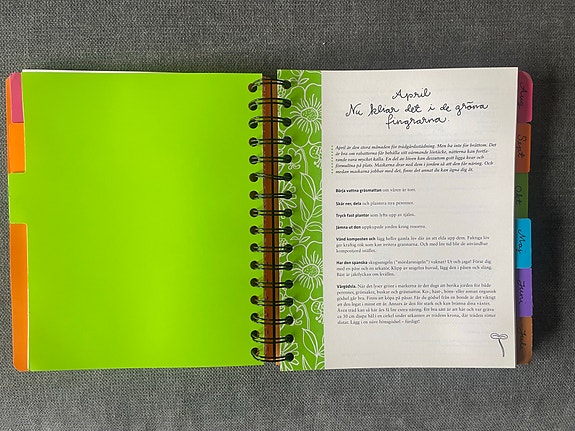 April
Nu kliar det i de gröna
fingrarna.
April är den stora månaden för trädgårdsstädning. Men ha inte för bråttom. Det
är bra om rabatterna får behålla sitt värmande lövtäcke, nätterna kan fortfa-
rande vara mycket kalla. En del av löven kan dessutom gott ligga kvar och
förmultna på plats. Maskarna drar ned dem i jorden så att den får näring. Och
medan maskarna jobbar med det, finns det annat du kan ägna dig åt.
Börja vattna gräsmattan om våren är torr.
Skär ner, dela och plantera nya perenner.
Tryck fast plantor som lyfts upp av tjälen.
Jämna ut den uppkupade jorden kring rosorna.
Vänd komposten och lägg hellre gamla löv där än att elda upp dem. Fuktiga löv
ger kraftig rök som kan irritera grannarna. Och med lite tid blir de användbar
kompostjord istället.
Har den spanska skogssnigeln ("mördarsnigeln") vaknat? Ut och jaga! Förse dig
med en påse och en sekatör. Klipp av snigelns huvud, lägg den i påsen och släng.
Bäst är jaktlyckan om kvällen.
Vårgödsla. När det lyser grönt i markerna är det dags att berika jorden för både
perenner, grönsaker, buskar och gräsmattor.
gödsel går bra. Finns att köpa på påsar. Får du gödsel från en bonde är det viktigt
att den legat i minst ett år. Annars är den för stark och kan bränna dina växter.
Även träd kan så här års få lite extra näring. Ett bra sätt är att här och var gräva
ca 30 cm djupa hål i en cirkel under utkanten av trädens krona, där trädets rötter
slutar. Lägg i en näve hönsgödsel – färdigt!
Aug
Sept
Okt
Maj
Juni